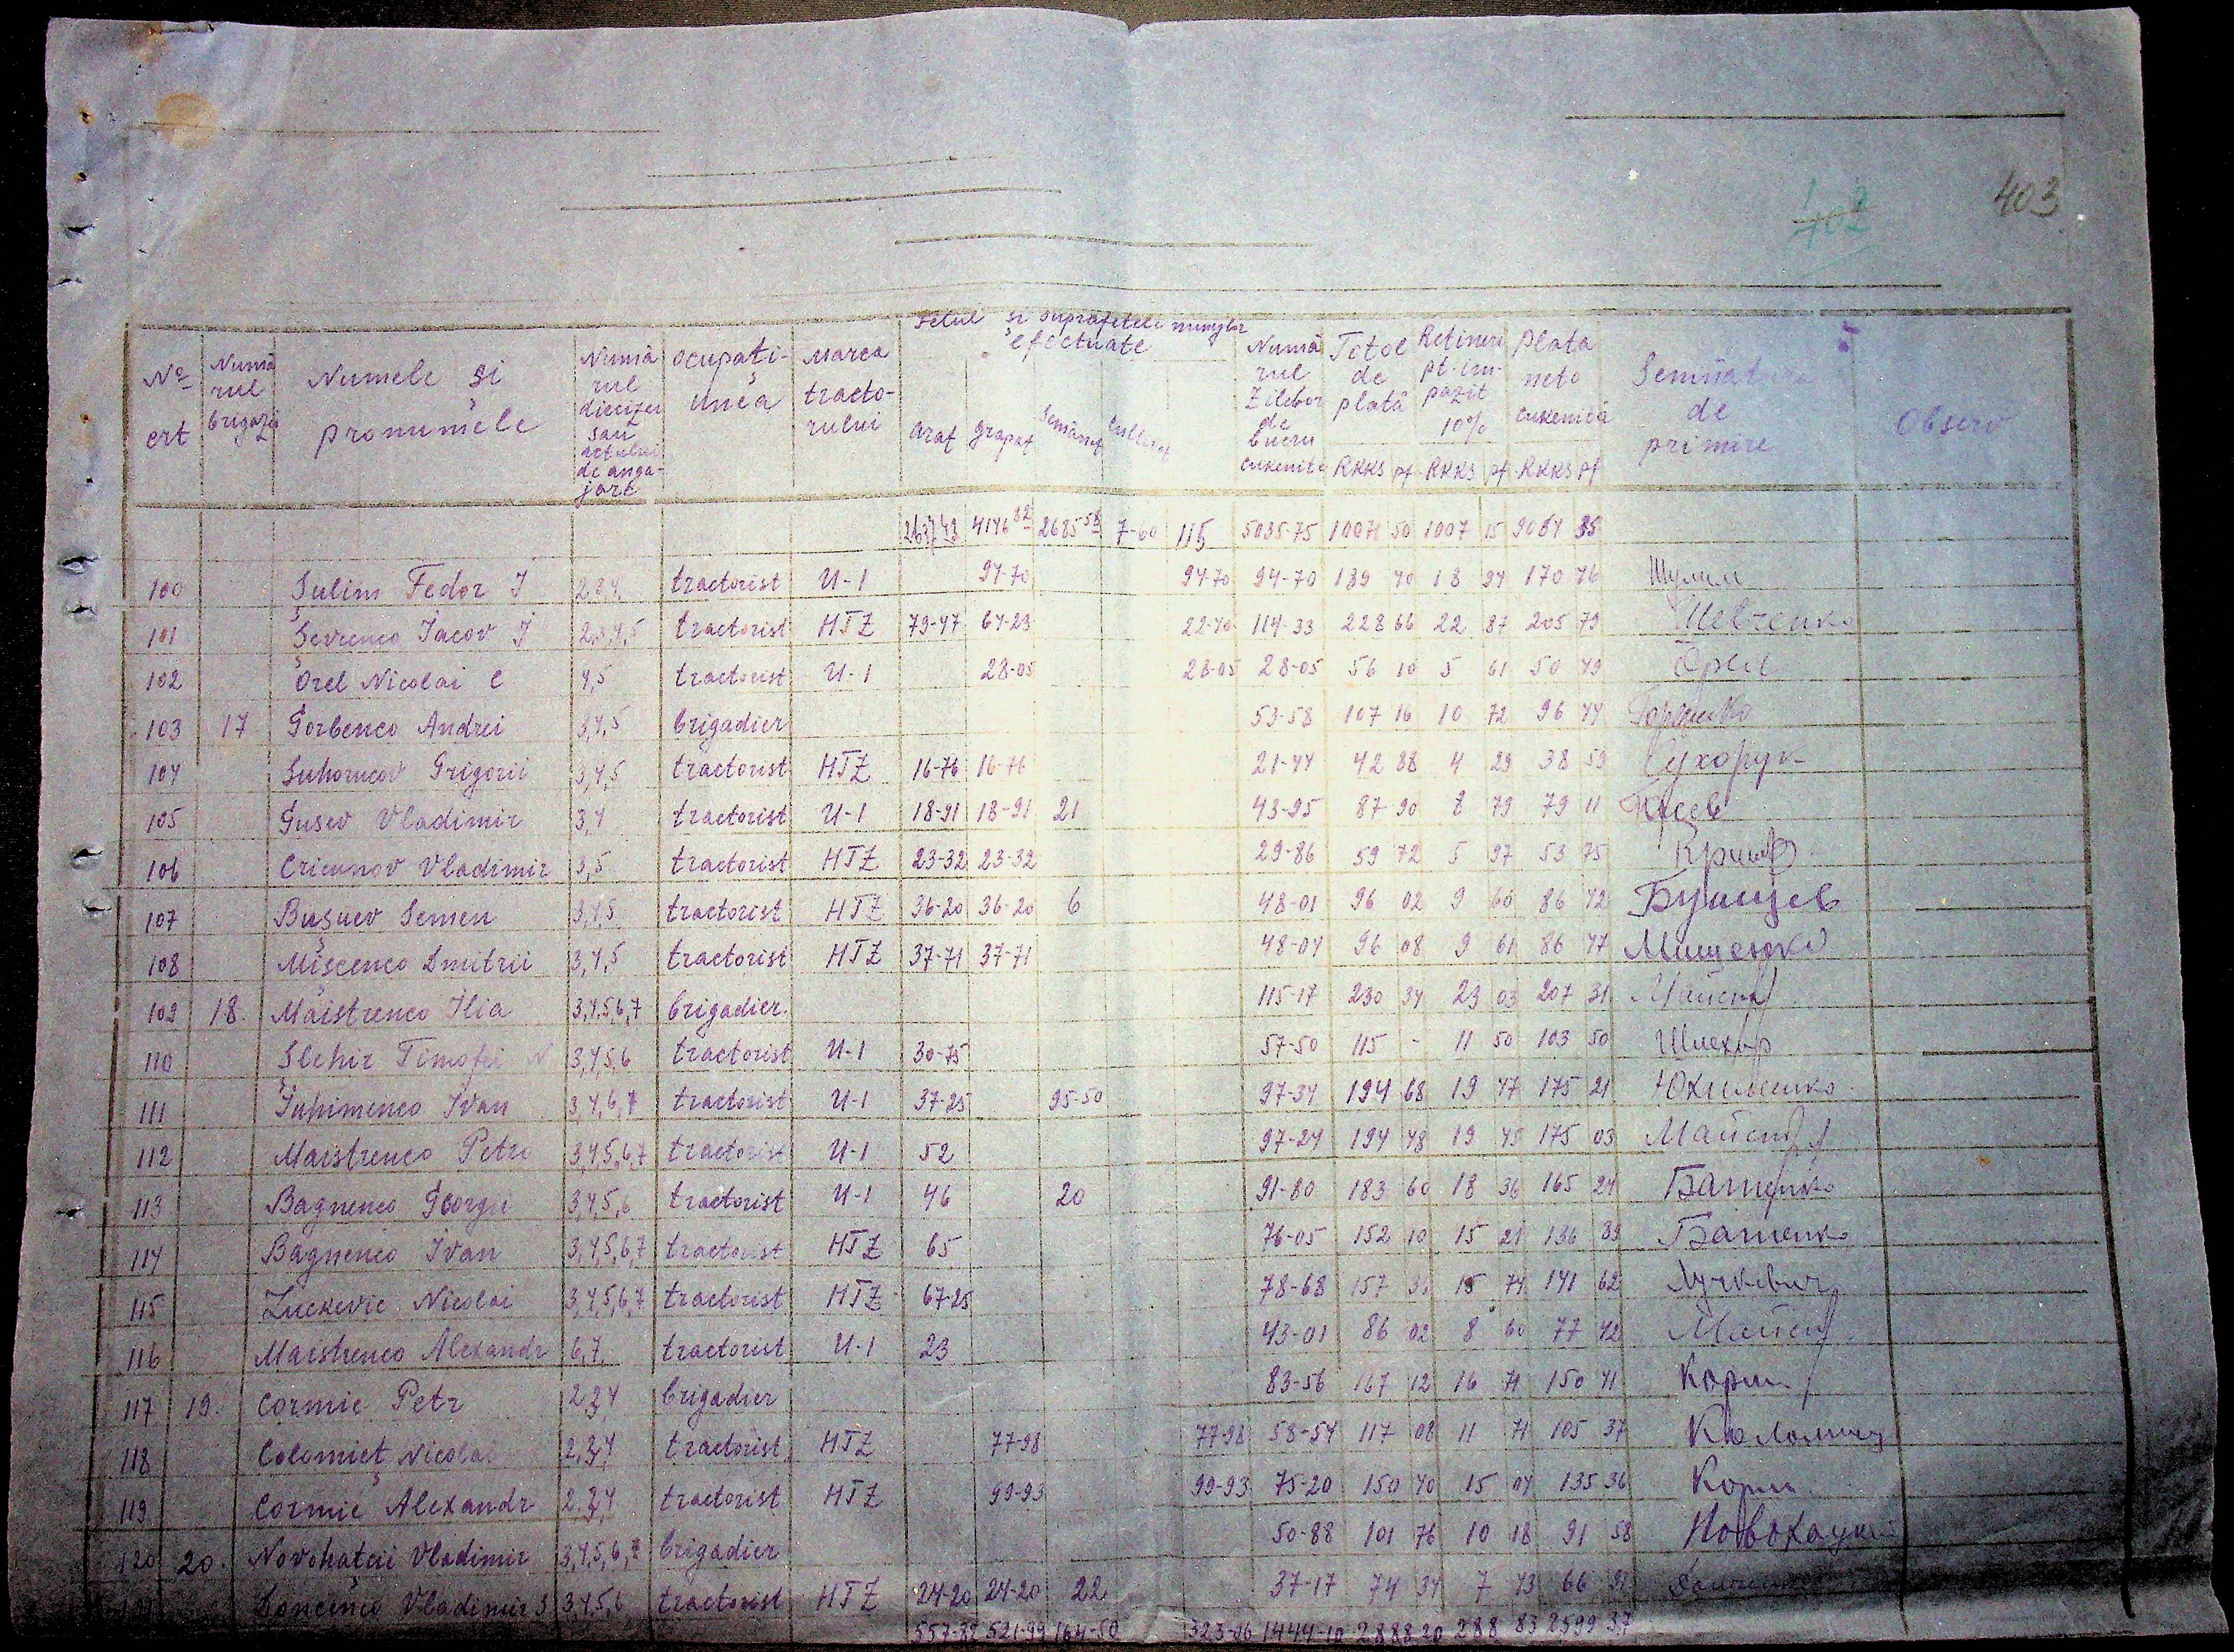 402
403
Felul și suprafetele muncilor efectuate
No crt | Numă rul brigăzii | Numele și pronumele | Numă rul deciziei sau actului de anga- jare | ocupați- unea | Marca tracto- rului | arat | grapat | Semănat | Numă rul Zilelor de lucru cuvenite | Total de plată RKKS pf | Retineri pt. im- pozit 10% RKKS pf | Plata neto cuvenită RKKS pf | Semnătura de primire | Observ
4146 82 2685 58 7-60 115 5035-75 10071 50 1007 15 9064 35
100 Șulim Fedor I 2,3,4, tractorist U-1 94-70 94-70 94-70 189 40 18 94 170 46 Шулим
101 Șevcenco Iacov I 2,3,4,5 tractorist HTZ 79-47 64-23 22-40 114-33 228 66 22 87 205 79 Шевченко
102 Orel Nicolai C 4,5 tractorist U-1 28-05 28-05 28-05 56 10 5 61 50 49 Орел
103 17 Gorbenco Andrei 3,4,5 brigadier 53-58 107 16 10 72 96 44 Горбенко
104 Suhorucov Grigorii 3,4,5 tractorist HTZ 16-76 16-76 21-44 42 88 4 29 38 59 Сухорук
105 Gusev Vladimir 3,4 tractorist U-1 18-91 18-91 21 43-95 87 90 8 79 79 11
106 Cricunov Vladimir 3,5 tractorist HTZ 23-32 23-32 29-86 59 72 5 97 53 75
107 Bușuev Semen 3,4,5 tractorist HTZ 36-20 36-20 6 48-01 96 02 9 60 86 42 Бушуев
108 Mișcenco Dmitrii 3,4,5 tractorist HTZ 37-71 37-71 48-04 96 08 9 61 86 47 Мищенко
109 18. Maistrenco Ilia 3,4,5,6,7 brigadier. 115-17 230 34 23 03 207 31
110 Șlehir Timofei N 3,4,5,6 tractorist U-1 30-75 57-50 115 - 11 50 103 50 Шлехир
111 Iuhimenco Ivan 3,4,6,7 tractorist U-1 37-25 95-50 97-34 194 68 19 47 175 21 Юхименко
112 Maistrenco Petro 3,4,5,6,7 tractorist U-1 52 97-24 194 48 19 45 175 03
113 Bagnenco Georgii 3,4,5,6 tractorist U-1 46 20 91-80 183 60 18 36 165 24
114 Bagnenco Ivan 3,4,5,6,7 tractorist HTZ 65 76-05 152 10 15 21 136 89
115 Luckevic Nicolai 3,4,5,6,7 tractorist HTZ 67-25 78-68 157 36 15 74 141 62 Лучкевич
116 Maistrenco Alexandr 6,7, tractorist U-1 23 43-01 86 02 8 60 77 42
117 19. Cormic Petr 2,3,4 brigadier 83-56 167 12 16 71 150 41
118 Colomieț Nicolai 2,3,4 tractorist HTZ 77-98 77-98 58-54 117 08 11 71 105 37 Коломиец
119 Cormic Alexandr 2,3,4 tractorist HTZ 99-93 99-93 75-20 150 40 15 04 135 36
120 20. Novohatcii Vladimir 3,4,5,6,7 brigadier 50-88 101 76 10 18 91 58 Новохацкий
Doncenco Vladimir S 3,4,5,6 tractorist HTZ 24-20 24-20 22 37-17 74 34 7 43 66 91
557-82 521-99 164-50 323-06 1444-10 2888 20 288 83 2599 37